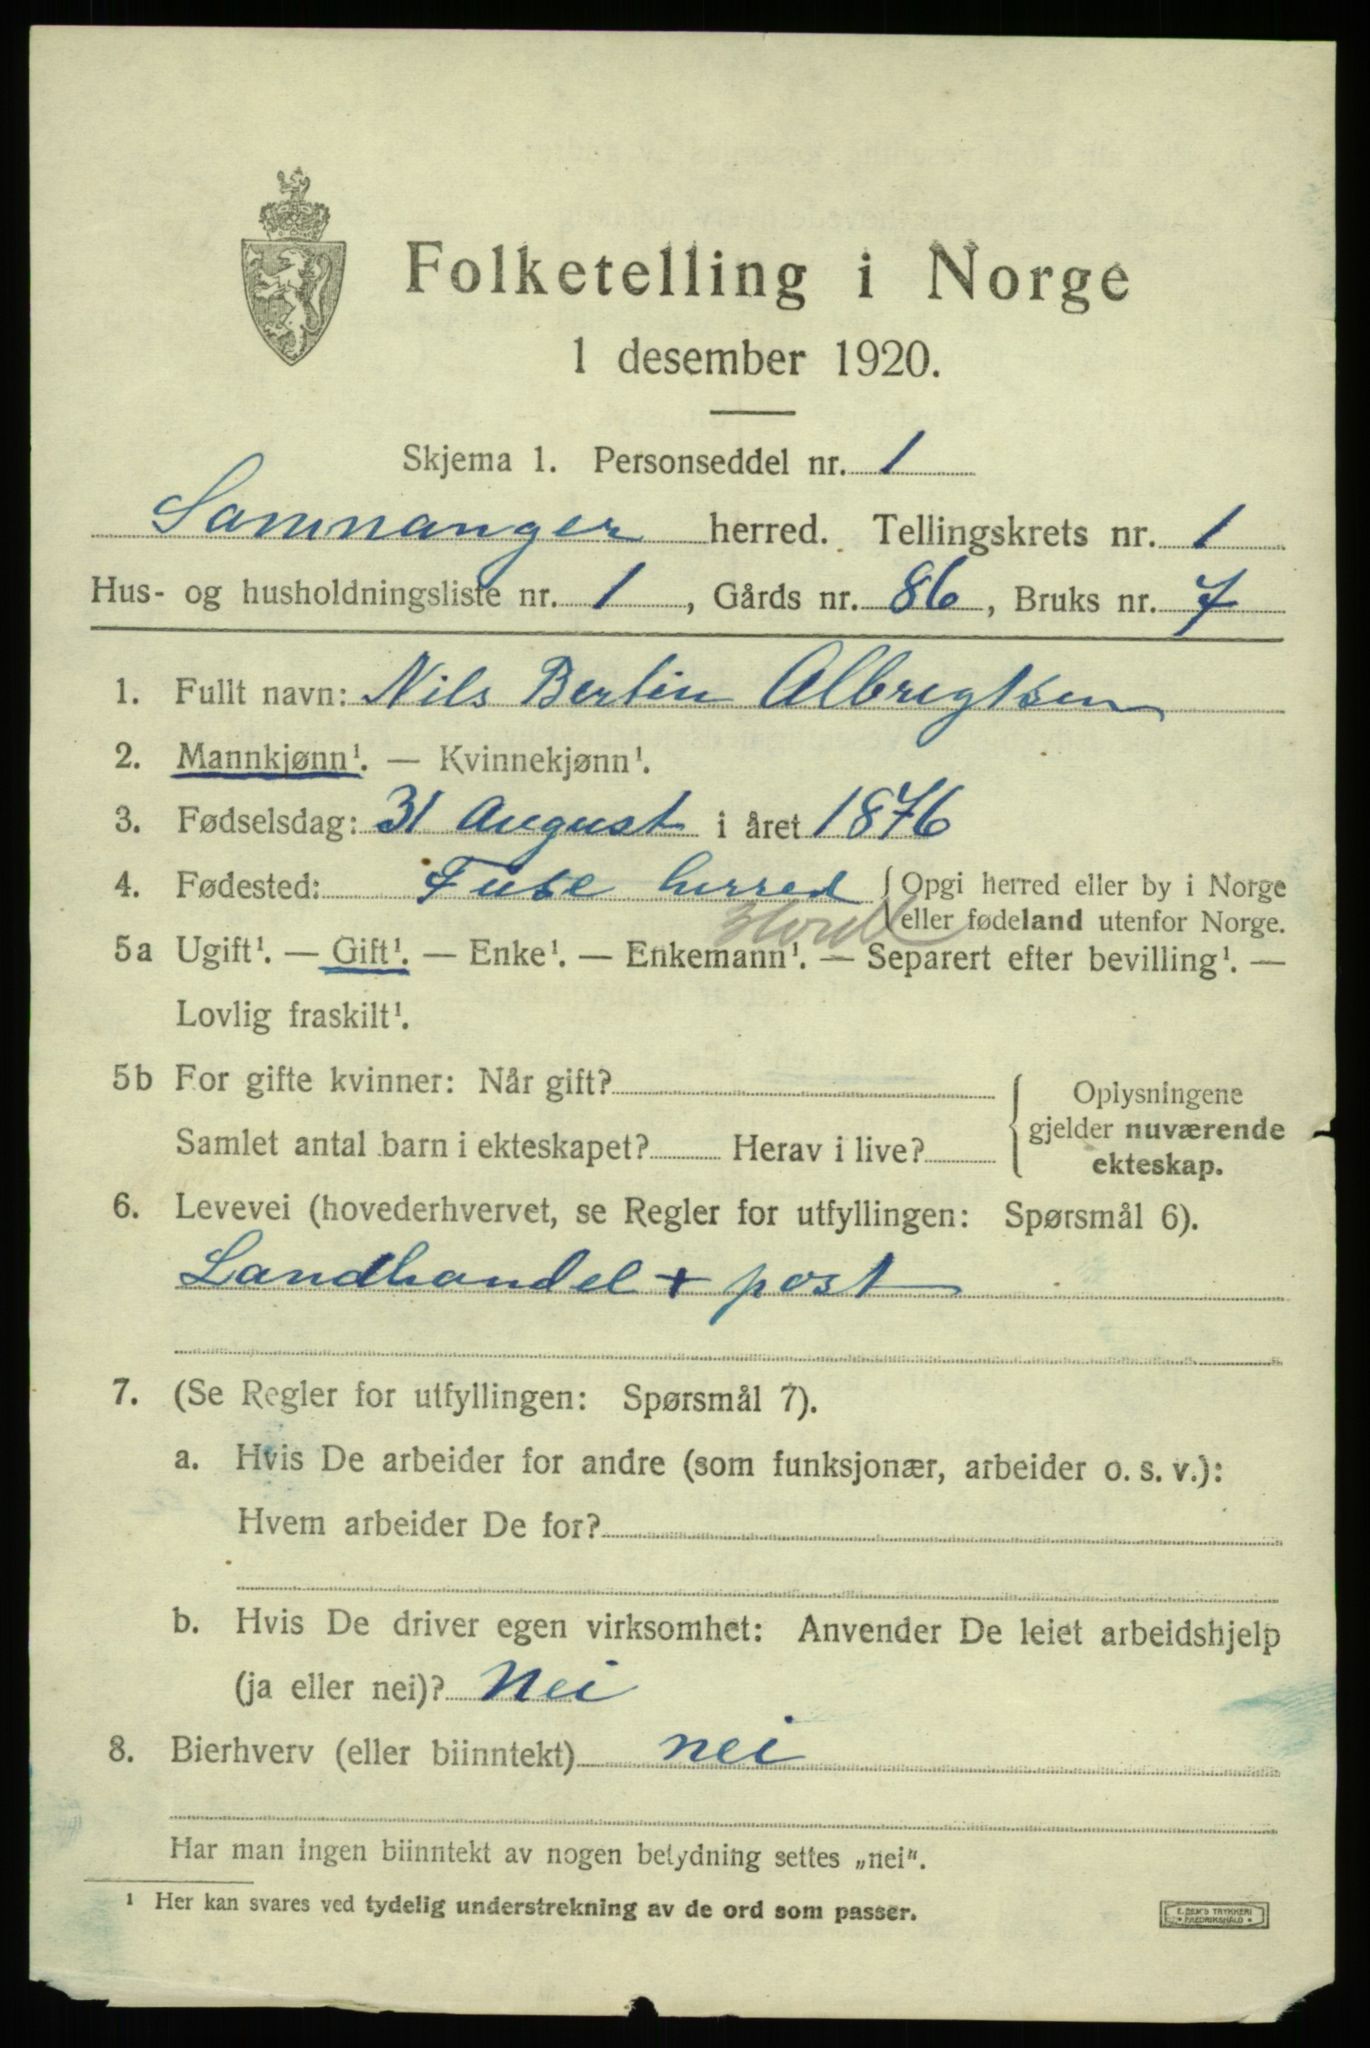 Folketelling i Norge
1 desember 1920.
Skjema 1. Personseddel nr. 1
Samnanger herred. Tellingskrets nr. 1
Hus- og husholdningsliste nr. 1, Gårds nr. 86, Bruks nr. 7
1. Fullt navn: Nils Bertin Albregtsen
2. Mannkjønn¹. — Kvinnekjønn¹.
3. Fødselsdag: 31 August i året 1876
4. Fødested: Fuse herred {Opgi herred eller by i Norge
eller fødeland utenfor Norge.
Hord
5a Ugift¹. — Gift¹. — Enke¹. — Enkemann¹. — Separert efter bevilling¹. —
Lovlig fraskilt¹.
5b For gifte kvinner: Når gift?
Samlet antal barn i ekteskapet? Herav i live?
{Oplysningene
gjelder nuværende
ekteskap.
6. Levevei (hovederhvervet, se Regler for utfyllingen: Spørsmål 6).
Landhandel + post
7. (Se Regler for utfyllingen: Spørsmål 7).
a. Hvis De arbeider for andre (som funksjonær, arbeider o. s. v.):
Hvem arbeider De for?
b. Hvis De driver egen virksomhet: Anvender De leiet arbeidshjelp
(ja eller nei)? Nei
8. Bierhverv (eller biinntekt) nei
Har man ingen biinntekt av nogen betydning settes „nei".
¹ Her kan svares ved tydelig understrekning av de ord som passer.
E. SEM'S TRYKKERI
FREDRIKSHALD